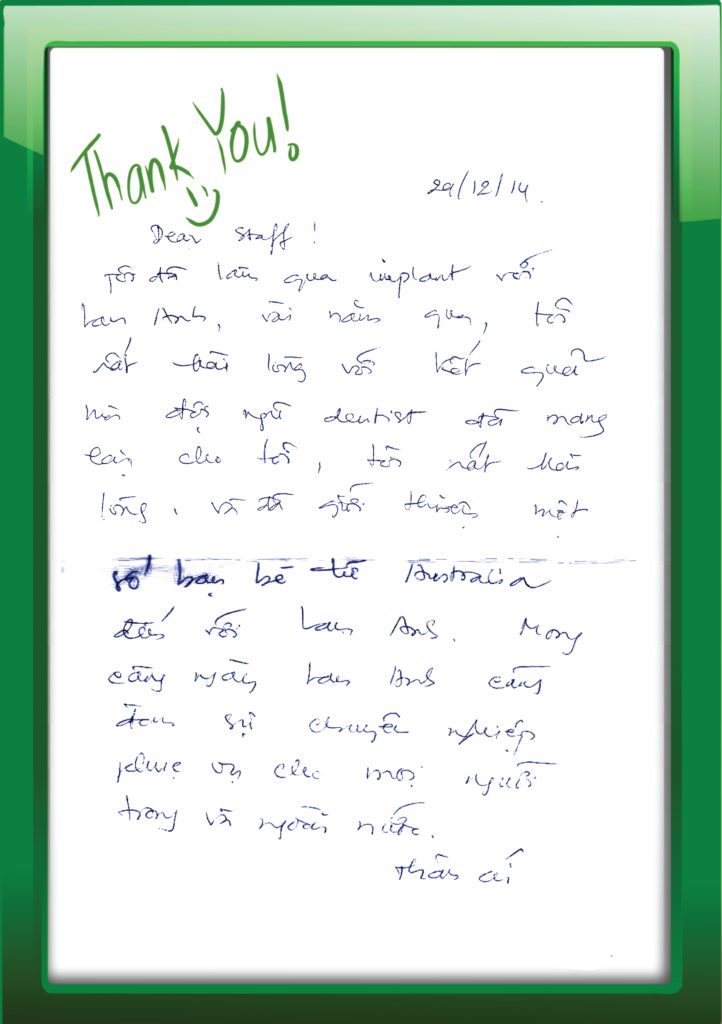 Thank You!
29/12/14.
Dear Staff!
Tôi đã làm qua implant với
Lan Anh, vài năm qua, tôi
rất hài lòng với kết quả
mà đội ngũ dentist đã mang
lại cho tôi, tôi rất hài
lòng, và đã giới thiệu một
số bạn bè từ Australia
đến với Lan Anh. Mong
càng ngày Lan Anh càng
đem sự chuyên nghiệp
phục vụ cho mọi người
trong và ngoài nước.
Thân ái